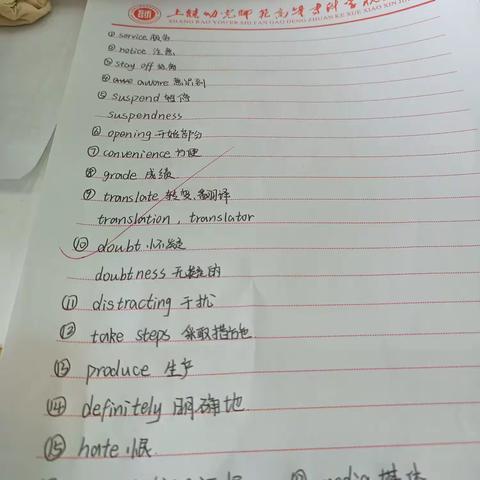 上饶幼儿师范高等专科学校
SHANG RAO YOU ER SHI FAN GAO DENG ZHUAN KE XUE XIAO XIN JI
① service 服务
② notice 注意
③ stay off 远离
④ aware 意识到
⑤ suspend 暂停
suspendness
⑥ opening 开始部分
⑦ convenience 方便
⑧ grade 成绩
⑨ translate 转变、翻译
translation , translator
⑩ doubt 怀疑
doubtness 无疑的
⑪ distracting 干扰
⑫ take steps 采取措施
⑬ produce 生产
⑭ definitely 明确地
⑮ hate 恨
media 媒体